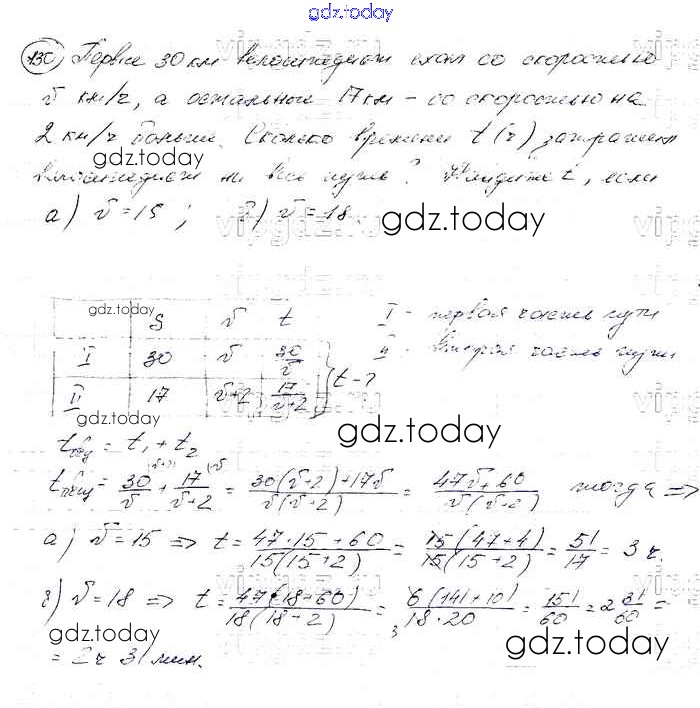 gdz.today
130) Первые 30 км велосипедист ехал со скоростью
v км/ч, а остальные 17 км - со скоростью на
2 км/ч больше. Сколько времени t (ч) затратил
gdz.today
велосипедист на весь путь? Найдите t, если
а) v = 15 ; б) v = 18. gdz.today
gdz.today S v t I - первая часть пути
I 30 v 30/v II вторая часть пути
II 17 v+2 17/(v+2) t - ?
gdz.today gdz.today
t общ = t₁ + t₂
t общ = 30/v + 17/(v+2) = (30(v+2)+17v)/(v(v+2)) = (47v+60)/(v(v+2)) тогда =>
а) v = 15 => t = (47·15+60)/(15(15+2)) = (15(47+4))/(15(15+2)) = 51/17 = 3 ч.
б) v = 18 => t = (47(18+60)/(18(18-2) = (6(141+10)/(18·20) = 151/60 = 2 31/60 =
gdz.today gdz.today
= 2ч 31 мин.